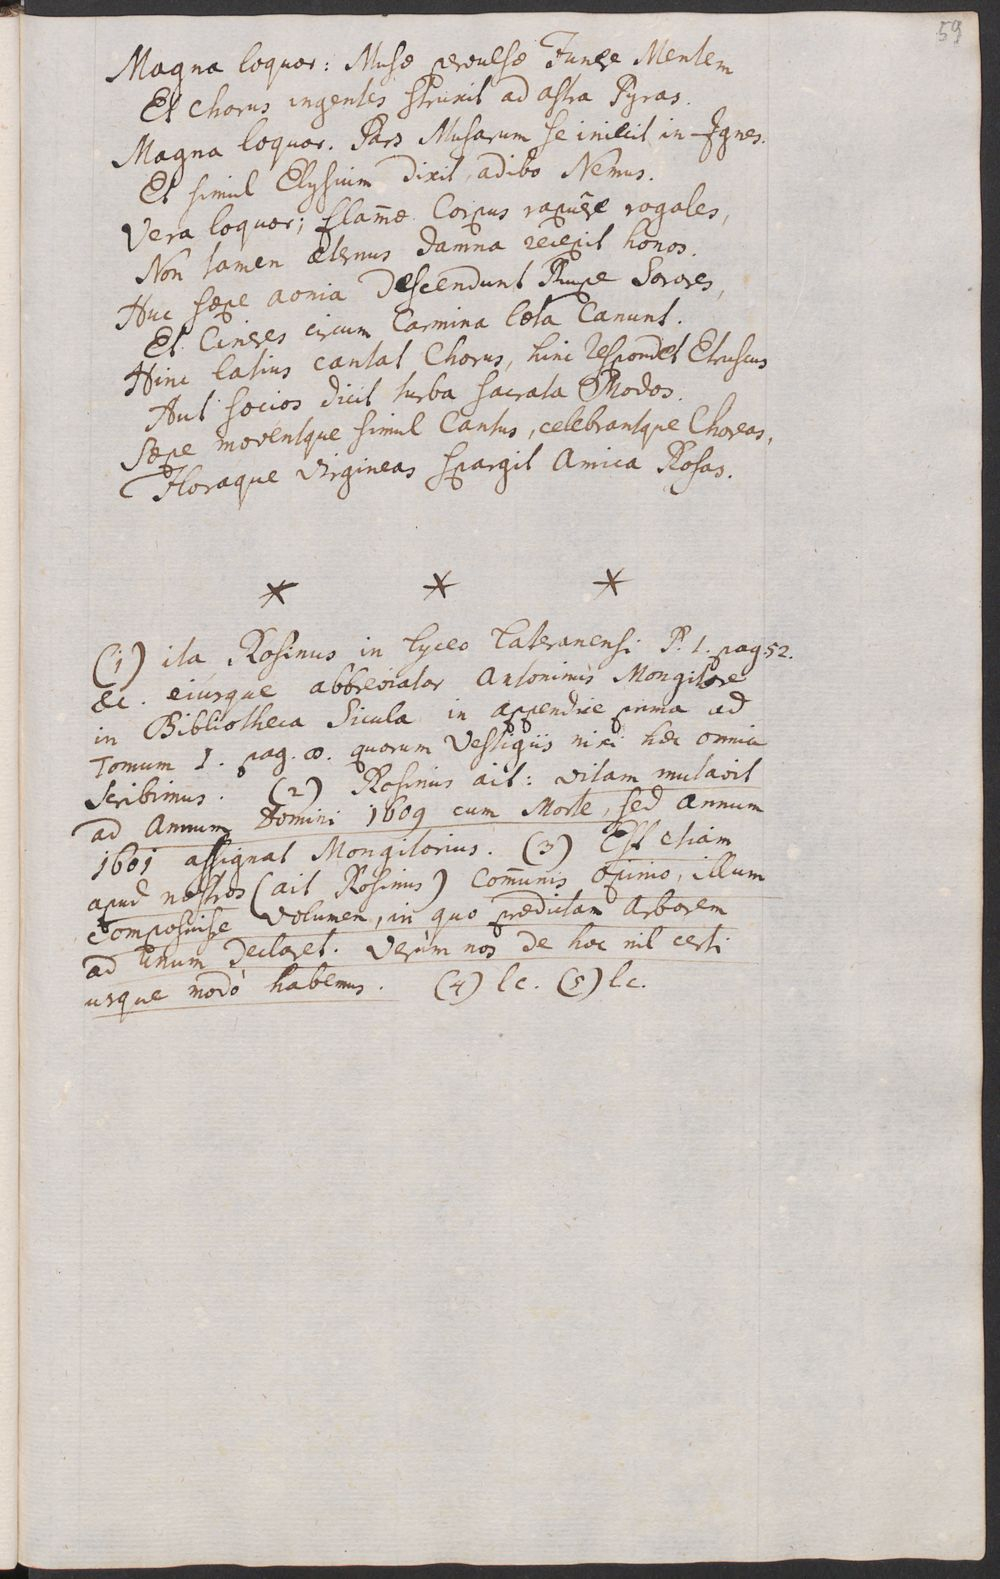 59
Magna loquor: Musæ perculsæ Funere Mentem
Et Chorus ingentes struxit ad astra Pyras.
Magna loquor. Pars Musarum se iniecit in Ignes.
Et simul Elysium dixit, adibo Nemus.
Vera loquor; flam̄æ Corpus rapuēre rogales,
Non tamen æternus damna recepit honos.
Huc sæpe aonia descendunt Rupe Sorores,
Et Cineres circum Carmina læta Canunt.
Hinc latius cantat Chorus, hinc respondet Etruscus
Aut socios dicit turba sacrata Modos.
Sæpe moventque simul Cantus, celebrantque Choreas,
Floraque virgineas spargit Amica Rosas.
* * *
(1) ita Rosinus in Lyceo Lateranensi P. 1. pag. 52.
&c. eiusque abbreviator Antoninus Mongitore
in Bibliotheca Sicula in appendice prima ad
Tomum I. pag. ∞. quorum Vestigiis nixi hæc omnia
Scribimus. (2) Rosinus ait: vitam mutavit
ad Annum Domini 1609 cum Morte, sed annum
1601 assignat Mongitorius. (3) Est etiam
apud nostros (ait Rosinus) com̄unis opinio, illum
composuisse volumen, in quo prædictam Arborem
ad unum declaret. Verùm nos de hoc nil certi
usque modò habemus. (4) l c. (5) l c.